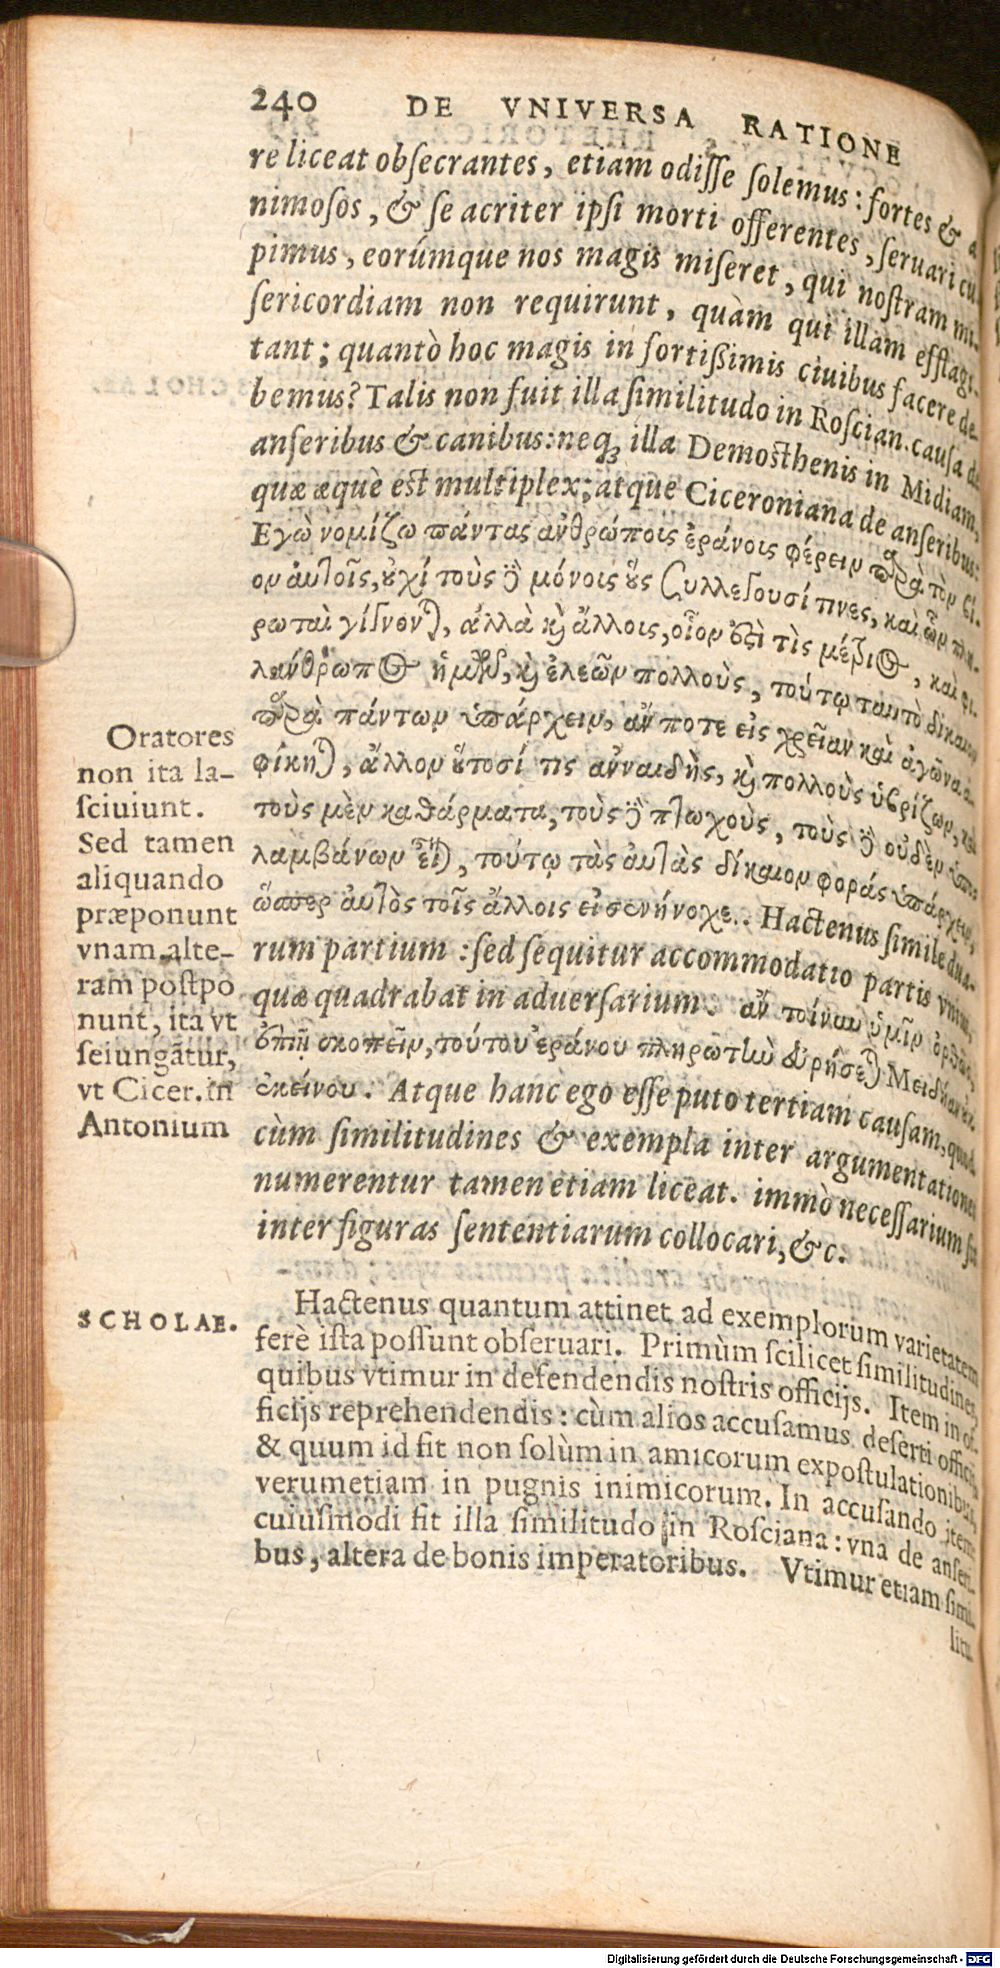 240 DE VNIVERSA RATIONE
re liceat obsecrantes, etiam odisse solemus: fortes & a
nimosos, & se acriter ipsi morti offerentes, seruari cu
pimus, eorúmque nos magis miseret, qui nostram mi-
sericordiam non requirunt, quàm qui illam efflagi-
tant; quantò hoc magis in fortißimis ciuibus facere de-
bemus? Talis non fuit illa similitudo in Roscian. causa de
anseribus & canibus: neq; illa Demosthenis in Midiam,
quæ æquè est multiplex; atque Ciceroniana de anseribus:
Εγὼ νομίζω πάντας ἀνθρώποις ἐράνοις φέρειν παρὰ τὸν βί-
ον αὐτοῖς, οὐχὶ τοὺς δὲ μόνοις οὓς συλλέγουσί τινες, καὶ ὧν πλη-
ρωταὶ γίγνονται, ἀλλὰ καὶ ἄλλοις, οἷον ἐστὶ τὶς μέτριος, καὶ φι-
λάνθρωπος ἡμῶν, καὶ ἐλεῶν πολλοὺς, τούτῳ ταυτὸ δίκαιον
παρὰ πάντων ὑπάρχειν, ἄν ποτε εἰς χρεῖαν καὶ ἀγῶνα ἀ-
φίκηται, ἄλλον οὑτοσί τις ἀναιδὴς, καὶ πολλοὺς ὑβρίζων, καὶ
τοὺς μὲν καθάρματα, τοὺς δὲ πτωχοὺς, τοὺς δὲ οὐδὲν ὑπο
λαμβάνων εἶναι, τούτῳ τὰς αὐτὰς δίκαιον φοράς ὑπάρχειν,
ὥσπερ αὐτὸς τοῖς ἄλλοις εἰσενήνοχε. Hactenus simile dua-
rum partium: sed sequitur accommodatio partis vnius,
quæ quadrabat in aduersarium. ἂν τοίνυν ὑμῖν ὀρθῶς,
ἐπίῃ σκοπεῖν, τούτου ἐράνου πληρωτὴν εὑρήσεται Μειδίαν ἐκ
ἐκείνου. Atque hanc ego esse puto tertiam causam, quod
cùm similitudines & exempla inter argumentationes
numerentur tamen etiam liceat. immò necessarium sit
inter figuras sententiarum collocari, &c.
Oratores
non ita la-
sciuiunt.
Sed tamen
aliquando
præponunt
vnam alte-
ram postpo
nunt, ita vt
seiungãtur,
vt Cicer. in
Antonium
SCHOLAE.
Hactenus quantum attinet ad exemplorum varietatem
ferè ista possunt obseruari. Primùm scilicet similitudines,
quibus vtimur in defendendis nostris officijs. Item in of-
ficijs reprehendendis: cùm alios accusamus deserti officij,
& quum id fit non solùm in amicorum expostulationibus,
verumetiam in pugnis inimicorum. In accusando item:
cuiusmodi fit illa similitudo in Rosciana: vna de anseri-
bus, altera de bonis imperatoribus. Vtimur etiam simi-
litu
Digitalisierung gefördert durch die Deutsche Forschungsgemeinschaft - DFG